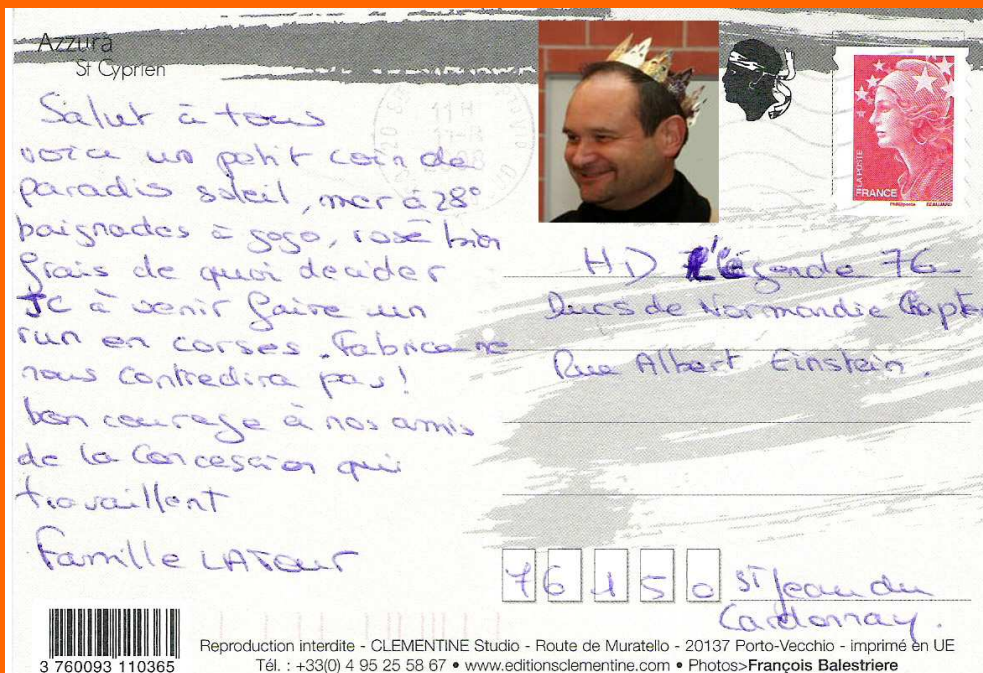 Azzura
St Cyprien
Salut à tous
voice un petit coin de
paradis soleil, mer à 28°
baignades à gogo, rosé bien
frais de quoi decider
JC à venir faire un
run en corses. Fabrice ne
nous contredira pas!
bon courage à nos amis
de la Concession qui
travaillent
Famille LATOUR
11 H
LA POSTE
FRANCE
HD L'égende 76
Ducs de Normandie Chapter
Rue Albert Einstein.
76150 St Jean du
Cardonnay.
3 760093 110365
Reproduction interdite - CLEMENTINE Studio - Route de Muratello - 20137 Porto-Vecchio - imprimé en UE
Tél. : +33(0) 4 95 25 58 67 • www.editionsclementine.com • Photos>François Balestriere